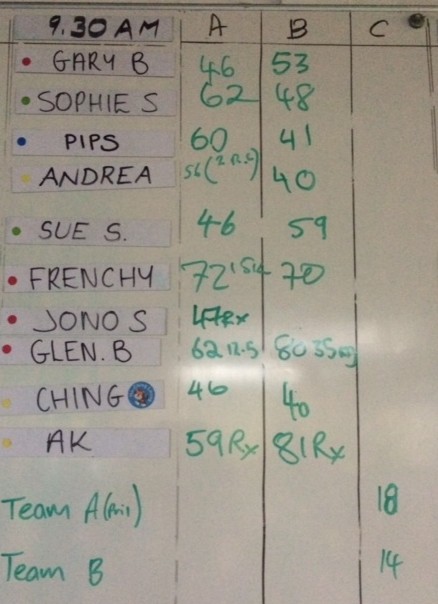 9.30 AM A B C
GARY B 46 53
SOPHIE S 62 48
PIPS 60 41
ANDREA 56 40
SUE S. 46 59
FRENCHY 72 70
JONO S 47Rx
GLEN. B 62 12.5 80 35kg
CHING 46 40
AK 59Rx 81Rx
Team A 18
Team B 14